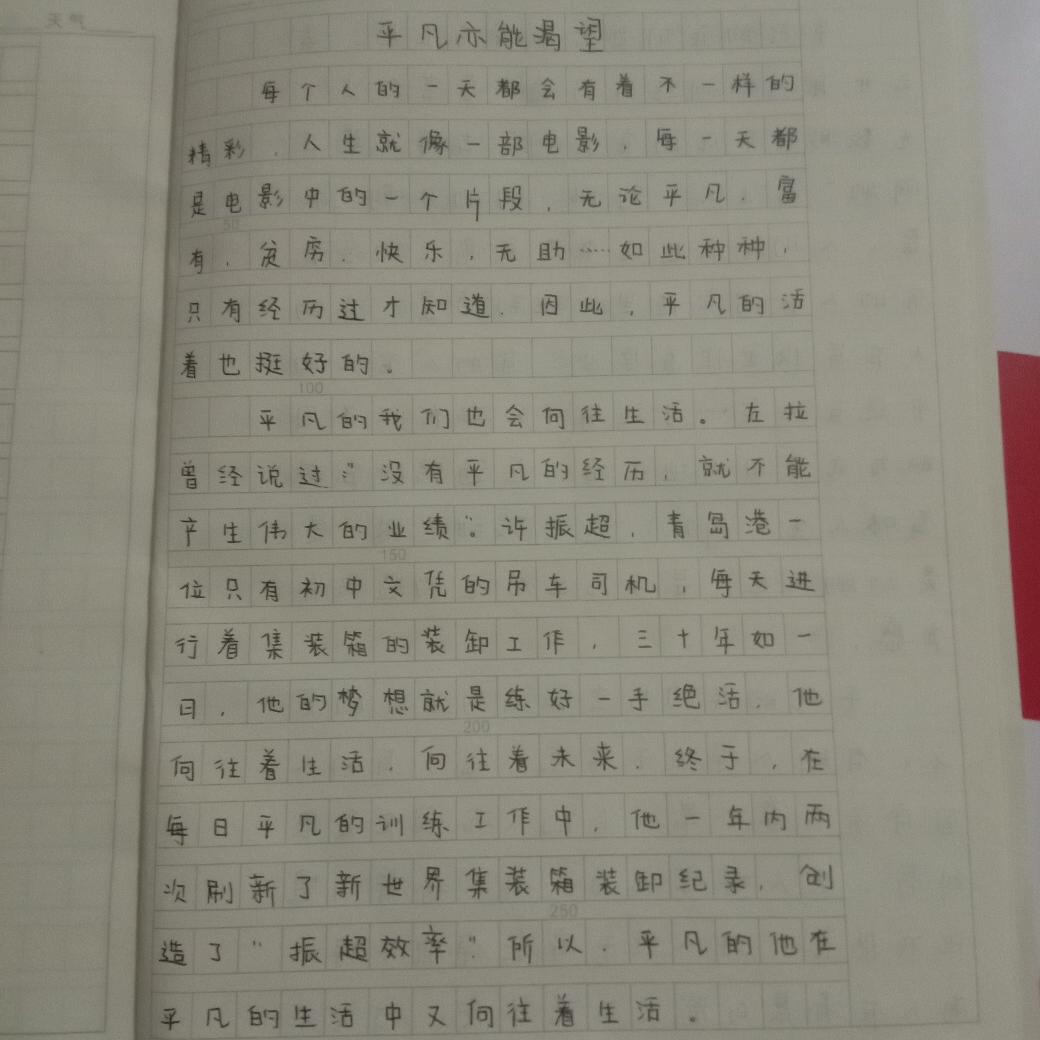 天气
平凡亦能渴望
每个人的一天都会有着不一样的
精彩．人生就像一部电影，每一天都
是电影中的一个片段，无论平凡．富
有，贫穷．快乐，无助……如此种种，
50
只有经历过才知道．因此，平凡的活
着也挺好的。
100
平凡的我们也会向往生活。左拉
曾经说过：“没有平凡的经历，就不能
产生伟大的业绩”。许振超，青岛港一
150
位只有初中文凭的吊车司机，每天进
行着集装箱的装卸工作，三十年如一
日，他的梦想就是练好一手绝活．他
200
向往着生活．向往着未来．终于，在
每日平凡的训练工作中，他一年内两
次刷新了新世界集装箱装卸纪录．创
250
造了“振超效率”所以．平凡的他在
平凡的生活中又向往着生活。